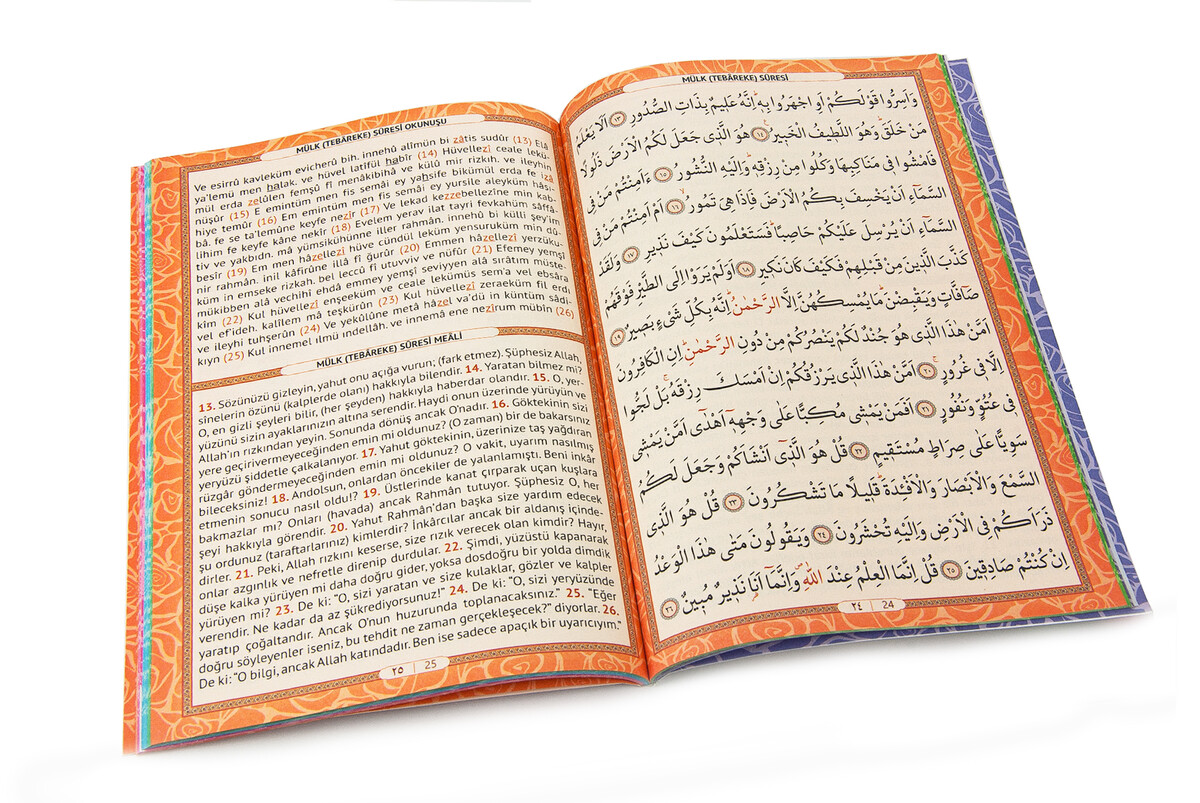 MÜLK (TEBÂREKE) SÛRESİ
وَاَسِرُّوا قَوْلَكُمْ اَوِ اجْهَرُوا بِهِ اِنَّهُ عَلِيمٌ بِذَاتِ الصُّدُورِ ﴿١٣﴾ اَلَا يَعْلَمُ
مَنْ خَلَقَ وَهُوَ اللَّطِيفُ الْخَبِيرُ ﴿١٤﴾ هُوَ الَّذِى جَعَلَ لَكُمُ الْاَرْضَ ذَلُولًا
فَامْشُوا فِى مَنَاكِبِهَا وَكُلُوا مِنْ رِزْقِهِ وَاِلَيْهِ النُّشُورُ ﴿١٥﴾ ءَاَمِنْتُمْ مَنْ فِى
السَّمَٓاءِ اَنْ يَخْسِفَ بِكُمُ الْاَرْضَ فَاِذَا هِىَ تَمُورُ ﴿١٦﴾ اَمْ اَمِنْتُمْ مَنْ فِى
السَّمَٓاءِ اَنْ يُرْسِلَ عَلَيْكُمْ حَاصِبًا فَسَتَعْلَمُونَ كَيْفَ نَذِيرِ ﴿١٧﴾ وَلَقَدْ
كَذَّبَ الَّذِينَ مِنْ قَبْلِهِمْ فَكَيْفَ كَانَ نَكِيرِ ﴿١٨﴾ اَوَلَمْ يَرَوْا اِلَى الطَّيْرِ فَوْقَهُمْ
صَٓافَّاتٍ وَيَقْبِضْنَ مَا يُمْسِكُهُنَّ اِلَّا الرَّحْمٰنُ اِنَّهُ بِكُلِّ شَىْءٍ بَصِيرٌ ﴿١٩﴾
اَمَّنْ هٰذَا الَّذِى هُوَ جُنْدٌ لَكُمْ يَنْصُرُكُمْ مِنْ دُونِ الرَّحْمٰنِ اِنِ الْكَافِرُونَ
اِلَّا فِى غُرُورٍ ﴿٢٠﴾ اَمَّنْ هٰذَا الَّذِى يَرْزُقُكُمْ اِنْ اَمْسَكَ رِزْقَهُ بَلْ لَجُّوا
فِى عُتُوٍّ وَنُفُورٍ ﴿٢١﴾ اَفَمَنْ يَمْشِى مُكِبًّا عَلٰى وَجْهِهِ اَهْدٰى اَمَّنْ يَمْشِى
سَوِيًّا عَلٰى صِرَاطٍ مُسْتَقِيمٍ ﴿٢٢﴾ قُلْ هُوَ الَّذِى اَنْشَاَكُمْ وَجَعَلَ لَكُمُ
السَّمْعَ وَالْاَبْصَارَ وَالْاَفْـِٔدَةَ قَلِيلًا مَا تَشْكُرُونَ ﴿٢٣﴾ قُلْ هُوَ الَّذِى
ذَرَاَكُمْ فِى الْاَرْضِ وَاِلَيْهِ تُحْشَرُونَ ﴿٢٤﴾ وَيَقُولُونَ مَتٰى هٰذَا الْوَعْدُ
اِنْ كُنْتُمْ صَادِقِينَ ﴿٢٥﴾ قُلْ اِنَّمَا الْعِلْمُ عِنْدَ اللّٰهِ وَاِنَّمَا اَنَا نَذِيرٌ مُبِينٌ ﴿٢٦﴾
٢٤ | 24
MÜLK (TEBÂREKE) SÛRESİ OKUNUŞU
Ve esirrû kavleküm evicherû bih. innehû alîmün bi zâtis sudûr (13) Elâ
ya'lemü men halak. ve hüvel latîfül habîr (14) Hüvellezî ceale lekü-
mül erda zelûlen femşû fî menâkibihâ ve külû mir rizkıh. ve ileyhin
nüşûr (15) E emintüm men fis semâi ey yahsife bikümül erda fe izâ
hiye temûr (16) Em emintüm men fis semâi ey yursile aleyküm hâsi-
bâ. fe se ta'lemûne keyfe nezîr (17) Ve lekad kezzebellezîne min kab-
lihim fe keyfe kâne nekîr (18) Evelem yerav ilat tayri fevkahüm sâffâ-
tiv ve yakbıdn. mâ yümsikühünne iller rahmân. innehû bi külli şey'im
besîr (19) Em men hâzellezî hüve cündül leküm yensuruküm min dû-
nir rahmân. inil kâfirûne illâ fî ğurûr (20) Emmen hâzellezî yerzükü-
küm in emseke rizkah. bel leccû fî utuvviv ve nüfûr (21) Efemey yemşî
mükibben alâ vechihî ehdâ emmey yemşî seviyyen alâ sırâtım müste-
kîm (22) Kul hüvellezî enşeeküm ve ceale lekümüs sem'a vel ebsâra
vel ef'ideh. kalîlem mâ teşkürûn (23) Kul hüvellezî zeraeküm fil erdı
ve ileyhi tuhşerûn (24) Ve yekûlûne metâ hâzel va'dü in küntüm sâdi-
kıyn (25) Kul innemel ılmü indellâh. ve innemâ ene nezîrum mübîn (26)
MÜLK (TEBÂREKE) SÛRESİ MEÂLİ
13. Sözünüzü gizleyin, yahut onu açığa vurun; (fark etmez). Şüphesiz Allah,
sinelerin özünü (kalplerde olanı) hakkıyla bilendir. 14. Yaratan bilmez mi?
O, en gizli şeyleri bilir, (her şeyden) hakkıyla haberdar olandır. 15. O, yer-
yüzünü sizin ayaklarınızın altına serendir. Haydi onun üzerinde yürüyün ve
Allah'ın rızkından yeyin. Sonunda dönüş ancak O'nadır. 16. Göktekinin sizi
yere geçirivermeyeceğinden emin mi oldunuz? (O zaman) bir de bakarsınız
yeryüzü şiddetle çalkalanıyor. 17. Yahut göktekinin, üzerinize taş yağdıran
rüzgâr göndermeyeceğinden emin mi oldunuz? O vakit, uyarım nasılmış
bileceksiniz! 18. Andolsun, onlardan öncekiler de yalanlamıştı. Beni inkâr
etmenin sonucu nasıl oldu!? 19. Üstlerinde kanat çırparak uçan kuşlara
bakmazlar mı? Onları (havada) ancak Rahmân tutuyor. Şüphesiz O, her
şeyi hakkıyla görendir. 20. Yahut Rahmân'dan başka size yardım edecek
şu ordunuz (taraftarlarınız) kimlerdir? İnkârcılar ancak bir aldanış içinde-
dirler. 21. Peki, Allah rızkını keserse, size rızık verecek olan kimdir? Hayır,
onlar azgınlık ve nefretle direnip durdular. 22. Şimdi, yüzüstü kapanarak
düşe kalka yürüyen mi daha doğru gider, yoksa dosdoğru bir yolda dimdik
yürüyen mi? 23. De ki: "O, sizi yaratan ve size kulaklar, gözler ve kalpler
verendir. Ne kadar da az şükrediyorsunuz!" 24. De ki: "O, sizi yeryüzünde
yaratıp çoğaltandır. Ancak O'nun huzurunda toplanacaksınız." 25. "Eğer
doğru söyleyenler iseniz, bu tehdit ne zaman gerçekleşecek?" diyorlar. 26.
De ki: "O bilgi, ancak Allah katındadır. Ben ise sadece apaçık bir uyarıcıyım."
٢٥ | 25